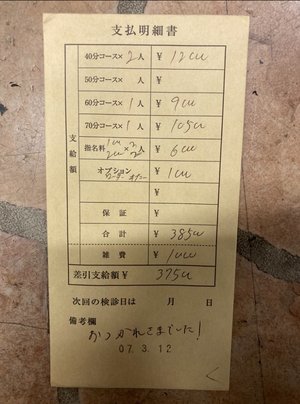 支払明細書
支給額
40分コース× 2人 ¥ 12000
50分コース× 人 ¥
60分コース× 1人 ¥ 9000
70分コース× 1人 ¥ 10500
指名料 ¥ 6000
オプション ¥ 1000
¥
保証 ¥
合計 ¥ 38500
雑費 ¥ 1000
差引支給額 ¥ 37500
次回の検診日は 月 日
備考欄
おつかれさまでした!
07.3.12